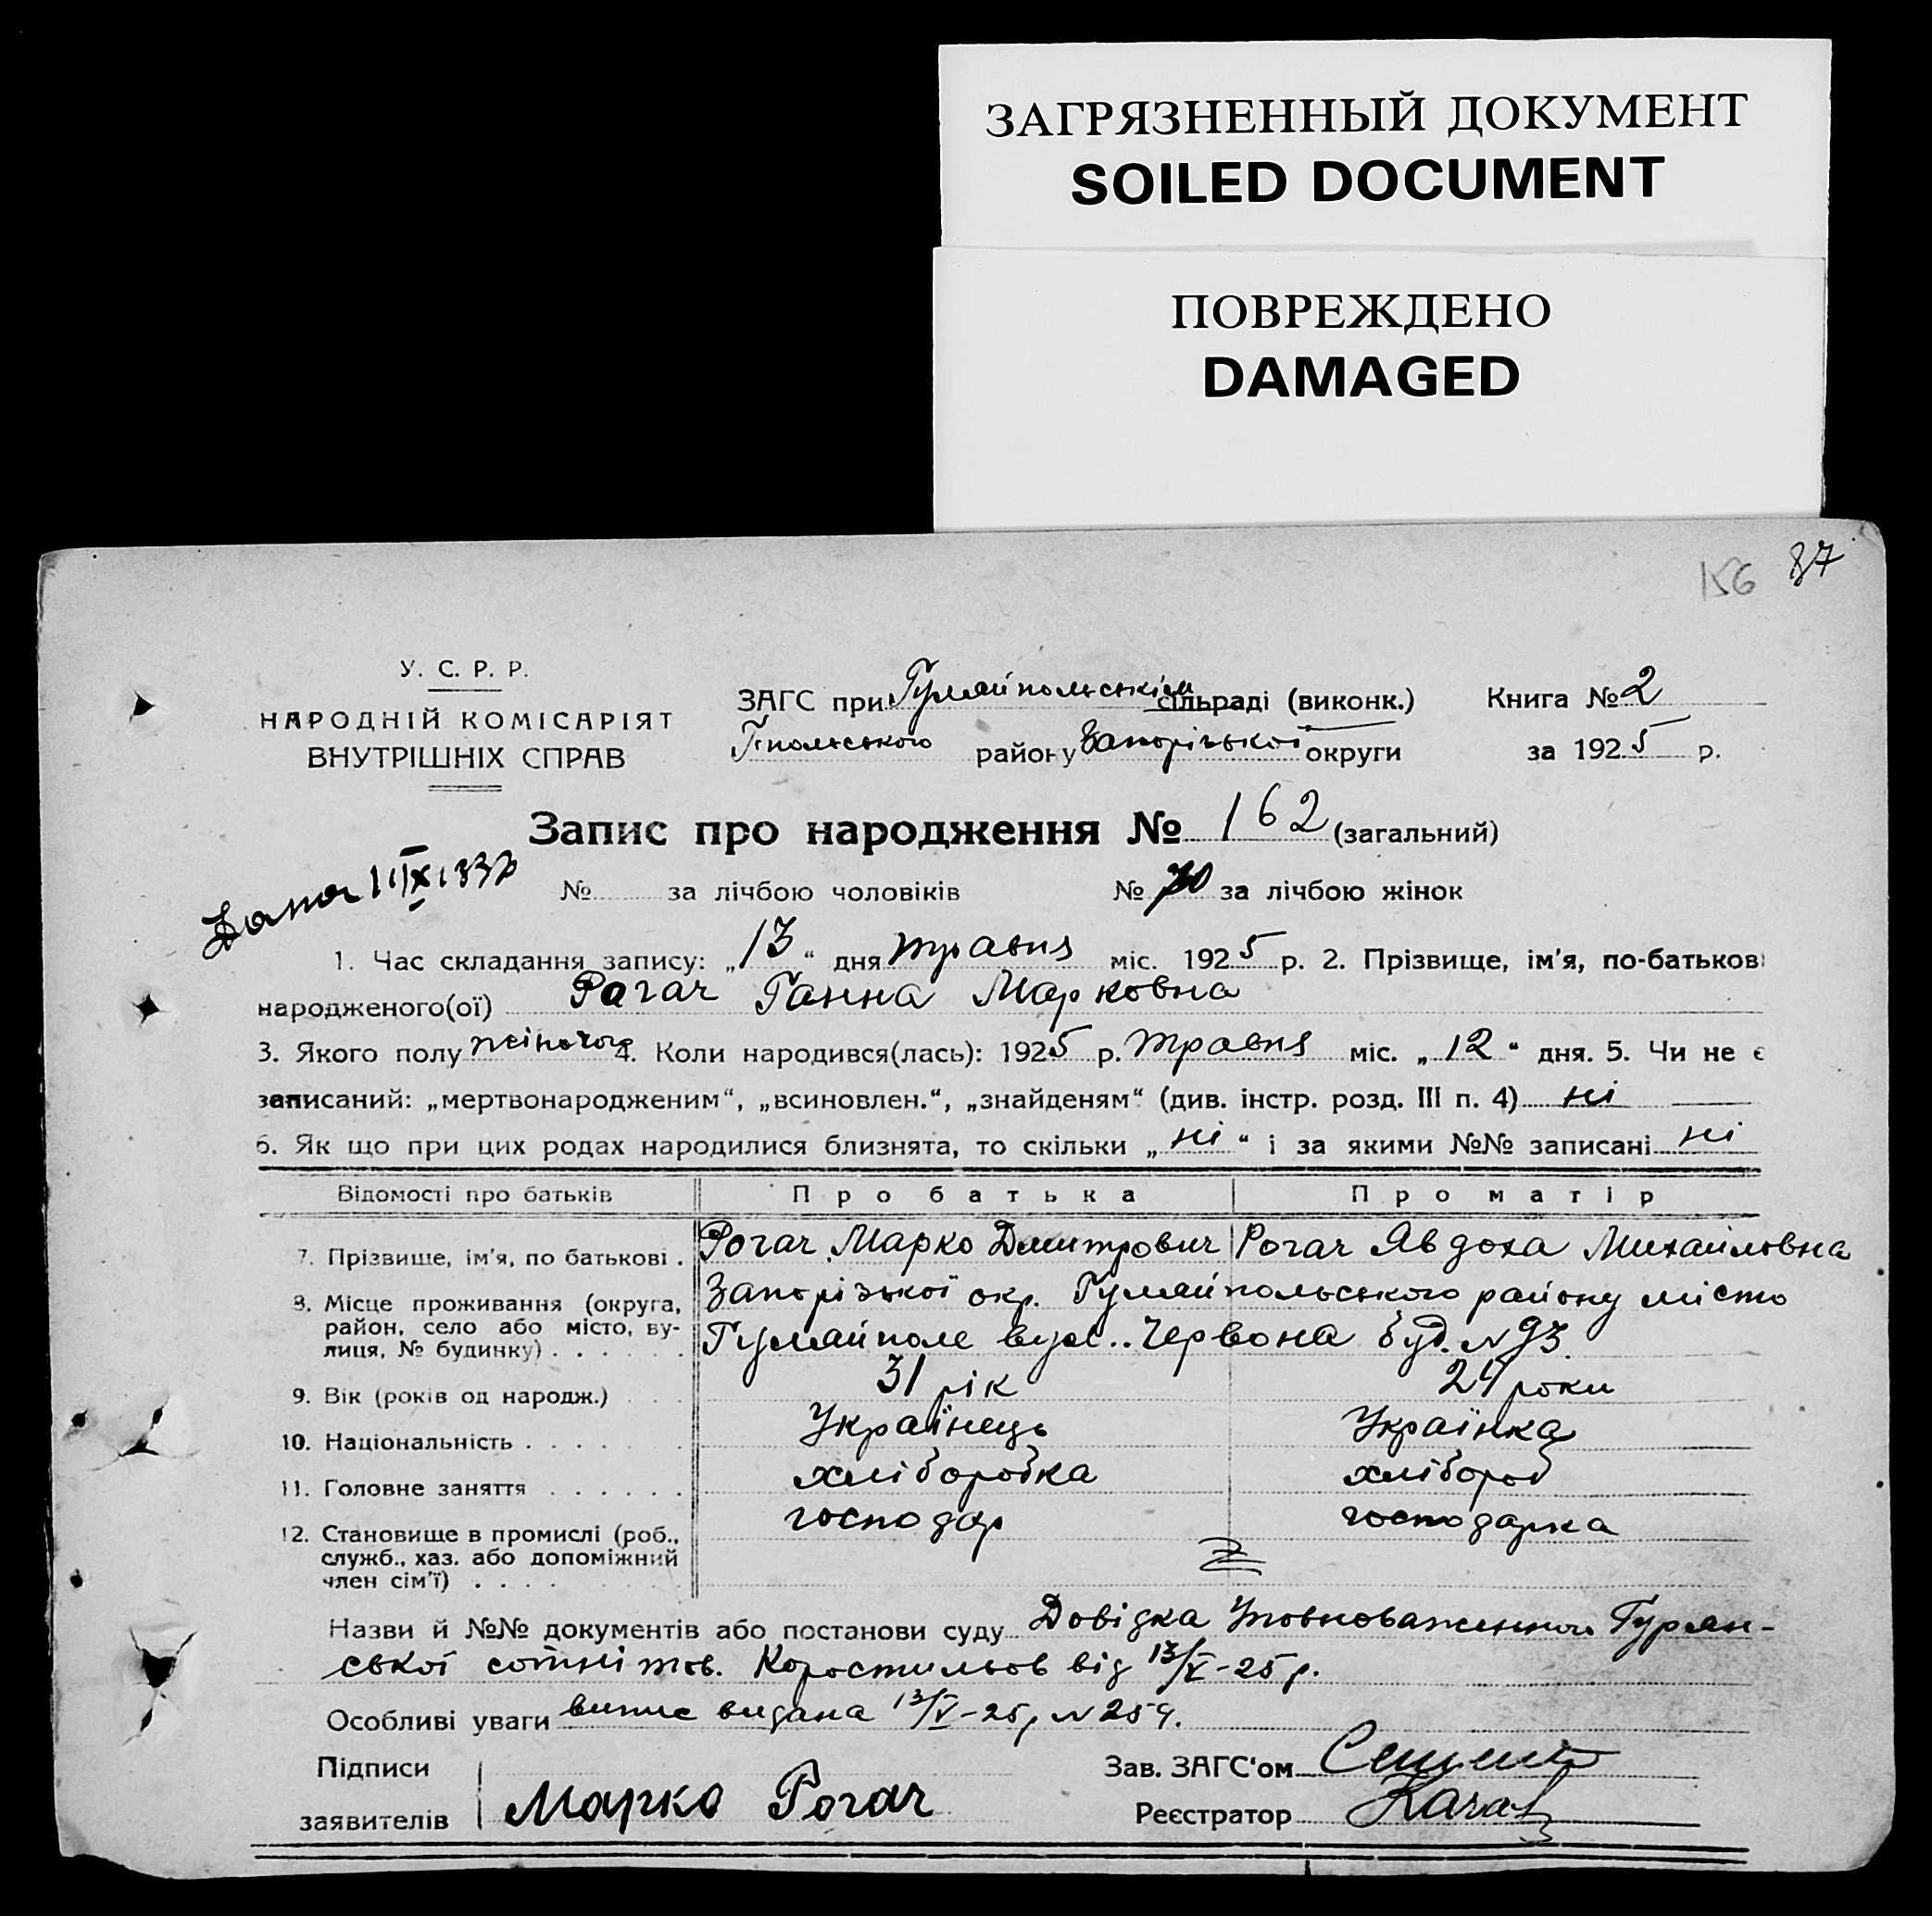 ЗАГРЯЗНЕННЫЙ ДОКУМЕНТ
SOILED DOCUMENT
ПОВРЕЖДЕНО
DAMAGED
156 87
У. С. Р. Р.
НАРОДНІЙ КОМІСАРІЯТ
ВНУТРІШНІХ СПРАВ
ЗАГС при Гуляйпольськім сільраді (виконк.) Книга № 2
Гпольського району Запорізької округи за 1925 р.
Запис про народження № 162 (загальний)
№ за лічбою чоловіків № 70 за лічбою жінок
1. Час складання запису: „13“ дня травня міс. 1925 р. 2. Прізвище, ім'я, по-батькові
народженого(ої) Рогач Ганна Марковна
3. Якого полу жіночого 4. Коли народився(лась): 1925 р. травня міс. „12“ дня. 5. Чи не є
записаний: „мертвонародженим“, „всиновлен.“, „знайденям“ (див. інстр. розд. III п. 4) ні
6. Як що при цих родах народилися близнята, то скільки „ні“ і за якими №№ записані ні
Відомості про батьків Про батька Про матір
7. Прізвище, ім'я, по батькові . Рогач Марко Дмитрович Рогач Явдоха Михайловна
8. Місце проживання (округа, район, село або місто, вулиця, № будинку) . . . . . . Запорізької окр. Гуляйпольського району місто
Гуляйполе вул.. Червона буд. № 93.
9. Вік (років од народж.) . . . 31 рік 24 роки
10. Національність . . . . . . . Українець Українка
11. Головне заняття . . . . . . хліборобка хлібороб
12. Становище в промислі (роб., служб., хаз. або допоміжний член сім'ї) . . . . господар господарка
Назви й №№ документів або постанови суду Довідка Уповноваженного Гурян-
ської сотні тов. Коростильов від 13/V-25 р.
Особливі уваги випис видана 13/V-25 р N 259.
Підписи
заявителів Марко Рогач
Зав. ЗАГС'ом
Реєстратор